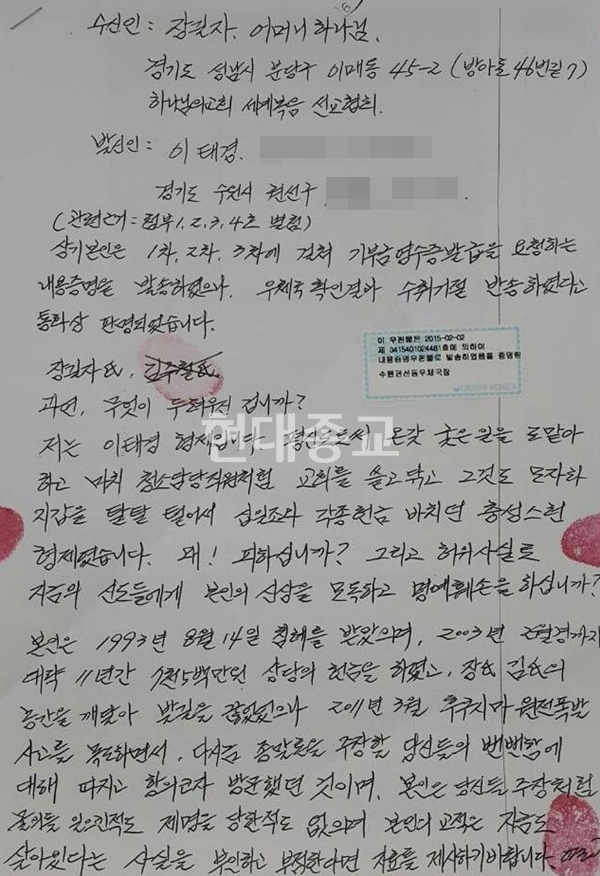 수신인: 장길자. 어머니 하나님.
경기도 성남시 분당구 이매동 45-2 (방아로 46번길 7)
하나님의교회 세계복음 선교협회.
발신인: 이태경.
경기도 수원시 권선구
(관련근거 = 첨부 1, 2, 3, 4호 별첨)
상기본인은 1차, 2차, 3차에 걸쳐 기부금영수증발급을 요청하는
내용증명을 발송하였으나. 우체국 확인결과 수취거절 반송하였다고
통화상 판명되었습니다.
이 우편물은 2015-02-02
제 3415401024481호에 의하여
내용증명우편물로 발송하였음을 증명함
수원권선동우체국장
장길자氏, 김주철氏
과연, 무엇이 두려우신 겁니까?
현대종교
저는 이태경 형제입니다. 평신도로써 온갖 궂은일을 도맡아
하고 마치 청소담당직원처럼 교회를 쓸고 닦고 그것도 모자라
지갑을 탈탈 털어서 십일조와 각종헌금 바치면 충성스런
형제였습니다. 왜! 피하십니까? 그리고 허위사실로
지금의 신도들에게 본인의 신상을 모독하고 명예훼손을 하십니까?
본인은 1993년 8월 14일 침례를 받았으며, 2003년 2월경까지
대략 11년간 1천5백만원 상당의 헌금을 하였고, 장氏 김氏의
농간을 깨달아 발길을 끊었었으나 2011년 3월 후쿠시마 원전폭발
사고를 목도하면서, 다시금 종말론을 주장할 당신들의 뻔뻔함에
대해 따지고 항의코자 방문했던 것이며. 본인은 당신들 주장처럼
물의를 일으킨적도 제명을 당한적도 없으며 본인의 교적은 지금도
살아있다는 사실을 부인하고 부정한다면 자료를 제시하기바랍니다